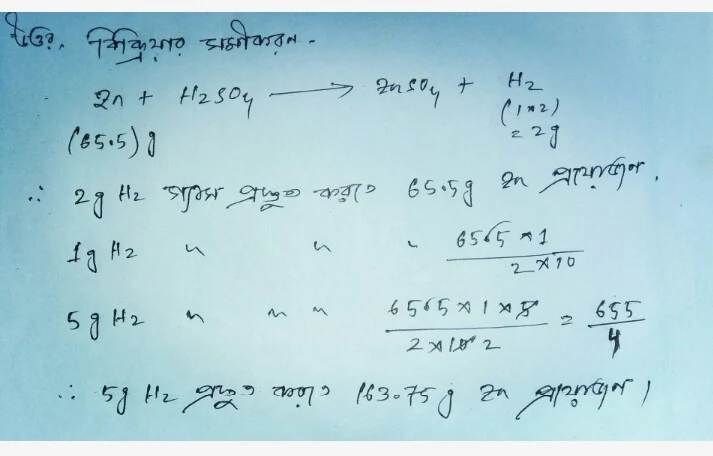 উত্তর. বিক্রিয়ার সমীকরণ -
Zn + H2SO4 ⟶ ZnSO4 + H2
(65.5)g (1×2) = 2g
∴ 2g H2 গ্যাস প্রস্তুত করতে 65.5g Zn প্রয়োজন.
1g H2 " " " 655×1 / 2×10
5g H2 " " " 655×1×5 / 2×10 2 = 655 / 4
∴ 5g H2 প্রস্তুত করতে 163.75g Zn প্রয়োজন।